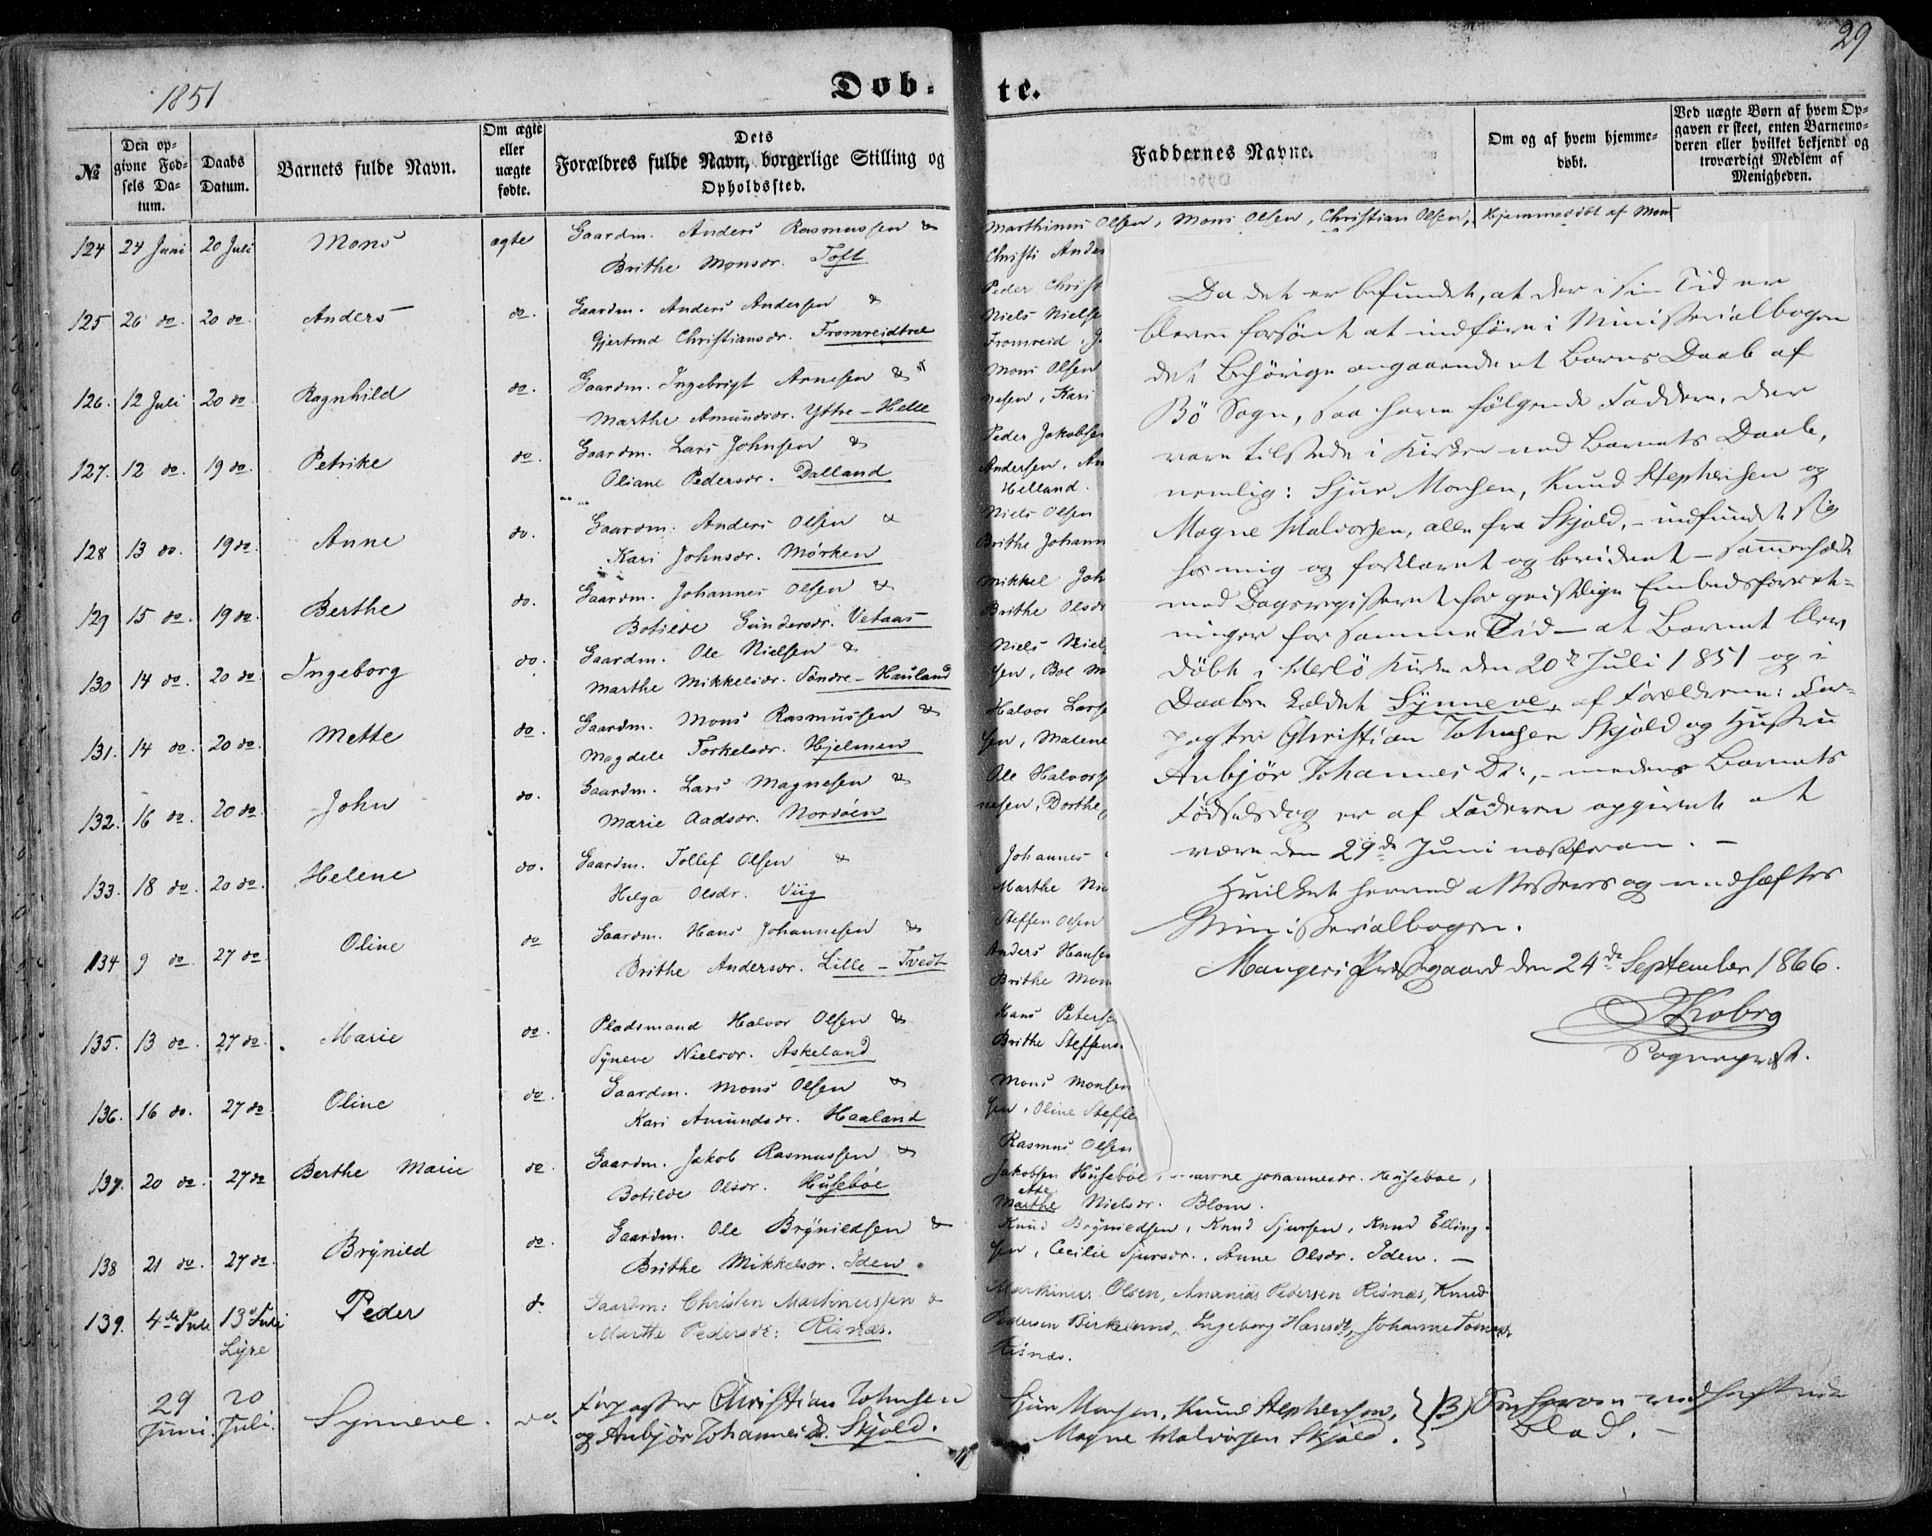 1851
Døb-
te.
29
№
Den op-
givne Fød-
sels Da-
tum.
Daabs
Datum.
Barnets fulde Navn.
Om ægte
eller
uægte
fødte.
Dets
Forældres fulde Navn, borgerlige Stilling og
Opholdssted.
Faddernes Navne.
Om og af hvem hjemme-
døbt.
Ved uægte Børn af hvem Op-
gaven er skeet, enten Barnemo-
deren eller hvilket bekjendt og
troværdigt Medlem af
Menigheden.
124 24 Juni 20 Juli Mons ægte Gaardm. Anders Rasmussen &
Brithe Monsdr. Toft
125 26 do. 20 do. Anders do. Gaardm. Anders Andersen &
Gjertrud Christiansdr. Fromreidtræ
126. 12 Juli 20 do. Ragnhild do. Gaardm. Ingebrigt Arnesen &
Marthe Amundsdr. Yttre-Helle
127. 12 do. 19 do. Petrike do. Gaardm. Lars Johnsen &
Oliane Pedersdr. Dalland
128 13 do. 19 do. Anne do. Gaardm. Anders Olsen &
Kari Johnsdr. Mørken
129 15 do. 19 do. Berthe do. Gaardm. Johannes Olsen &
Botilde Gundersdr. Vetaas
130 14 do. 20 do. Ingeborg do. Gaardm. Ole Nielsen &
Marthe Mikkelsdr. Söndre-Hauland
131. 14 do. 20 do. Mette do. Gaardm. Mons Rasmussen &
Magdele Torkelsdr. Hjelmen
132. 16 do. 20 do. John do. Gaardm. Lars Magnesen &
Marie Aadsdr. Nordöen
133. 18 do. 20 do. Helene do. Gaardm. Tollef Olsen &
Helga Olsdr. Viig
134 9 do. 27 do. Oline do Gaardm. Hans Johannesen &
Brithe Andersdr. Lille-Tvedt
135. 13 do. 27 do. Marie do. Pladsmand Halvor Olsen &
Syneve Nielsdr. Askeland
136. 16 do. 27 do Oline do. Gaardm. Mons Olsen &
Kari Amundsdr. Haaland
137. 20 do. 27 do Berthe Marie do Gaardm. Jakob Rasmussen &
Botilde Olsdr. Husebøe
138 21 do. 27 do. Brynild do. Gaardm. Ole Brynildsen &
Brithe Mikkelsdr. Iden.
139. 4de Juli 13de Juli Peder d. Gaardm: Christen Martinussen &
Lyre Marthe Pedersdr: Risnæs.
29 20
Juni. Juli. Synneve. do. Forpagter Christian Johnsen
og Anbjör Johannesdr. Skjold.
Marthinus Olsen, Mons Olsen, Christian Olsen, Hjemmedöbt af Mons
Christi Ander
Peder Christ
Niels Nielse
Fromreid, G
Mons Olsen
nesen, Kari
Peder Jakobsen
Andersen, An
Helland.
Niels Olsen
Brithe Johann
Mikkel Joh
Brithe Olsdr
Niels Niels
sen, Boe M
Halvor Lars
sen, Malene
Ole Halvorss
nesen, Dorthe
Johannes
Marthe Nie
Steffen Olsen
Anders Hansen
Brithe Mon
Hans Peterse
Brithe Steffens
Mons Monsen
sen, Oline Steffe
Rasmus Olsen
Jakobsen Husebøe, Johannesdr. Husebøe,
Marthe Nielsdr. Blom.
Knud Brynildsen, Knud Sjursen, Knud Elling-
sen, Cecilie Sjursdr., Anne Olsdr. Iden. —
Markinus Olsen, Ananias Pedersen Risnæs, Knud
Pedersen Birkelund, Ingeborg Hansdr, Johanne
Risnæs.
Sjur Monsen, Knud Stephensen,
Magne Halvorsen Skjold.
vedhæftede
Blad. —
Da det er befundet, at der i sin Tid er
bleven forsömt at indföre i Ministerialbogen
det Behörige angaaende et Barns Daab af
Bö Sogn, saa have fölgende Faddere, der
vare tilstede i Kirken ved Barnets Daab,
nemlig: Sjur Monsen, Knud Stephensen og
Magne Halvorsen, alle fra Skjold, – indfundet sig
hos mig og forklaret og bevidnet – sammenholdt
med Dagsregisteret for geistlige Embedsforret-
ninger for samme Tid – at Barnet blev
döbt i Herlö Kirke den 20de Juli 1851 og i
Daaben kaldet Synneve, af Forældrene: For-
pagter Christian Johnsen Skjold og Hustru
Anbjör Johannes Dr., – medens Barnets
Födselsdag er af Faderen opgivet at
være den 29de Juni næstforan. –
Hvilket herved attesteres og vedhæftes
Ministerialbogen.
Mangers Præstegaard den 24de September 1866.
Kobro
Sognepræst.